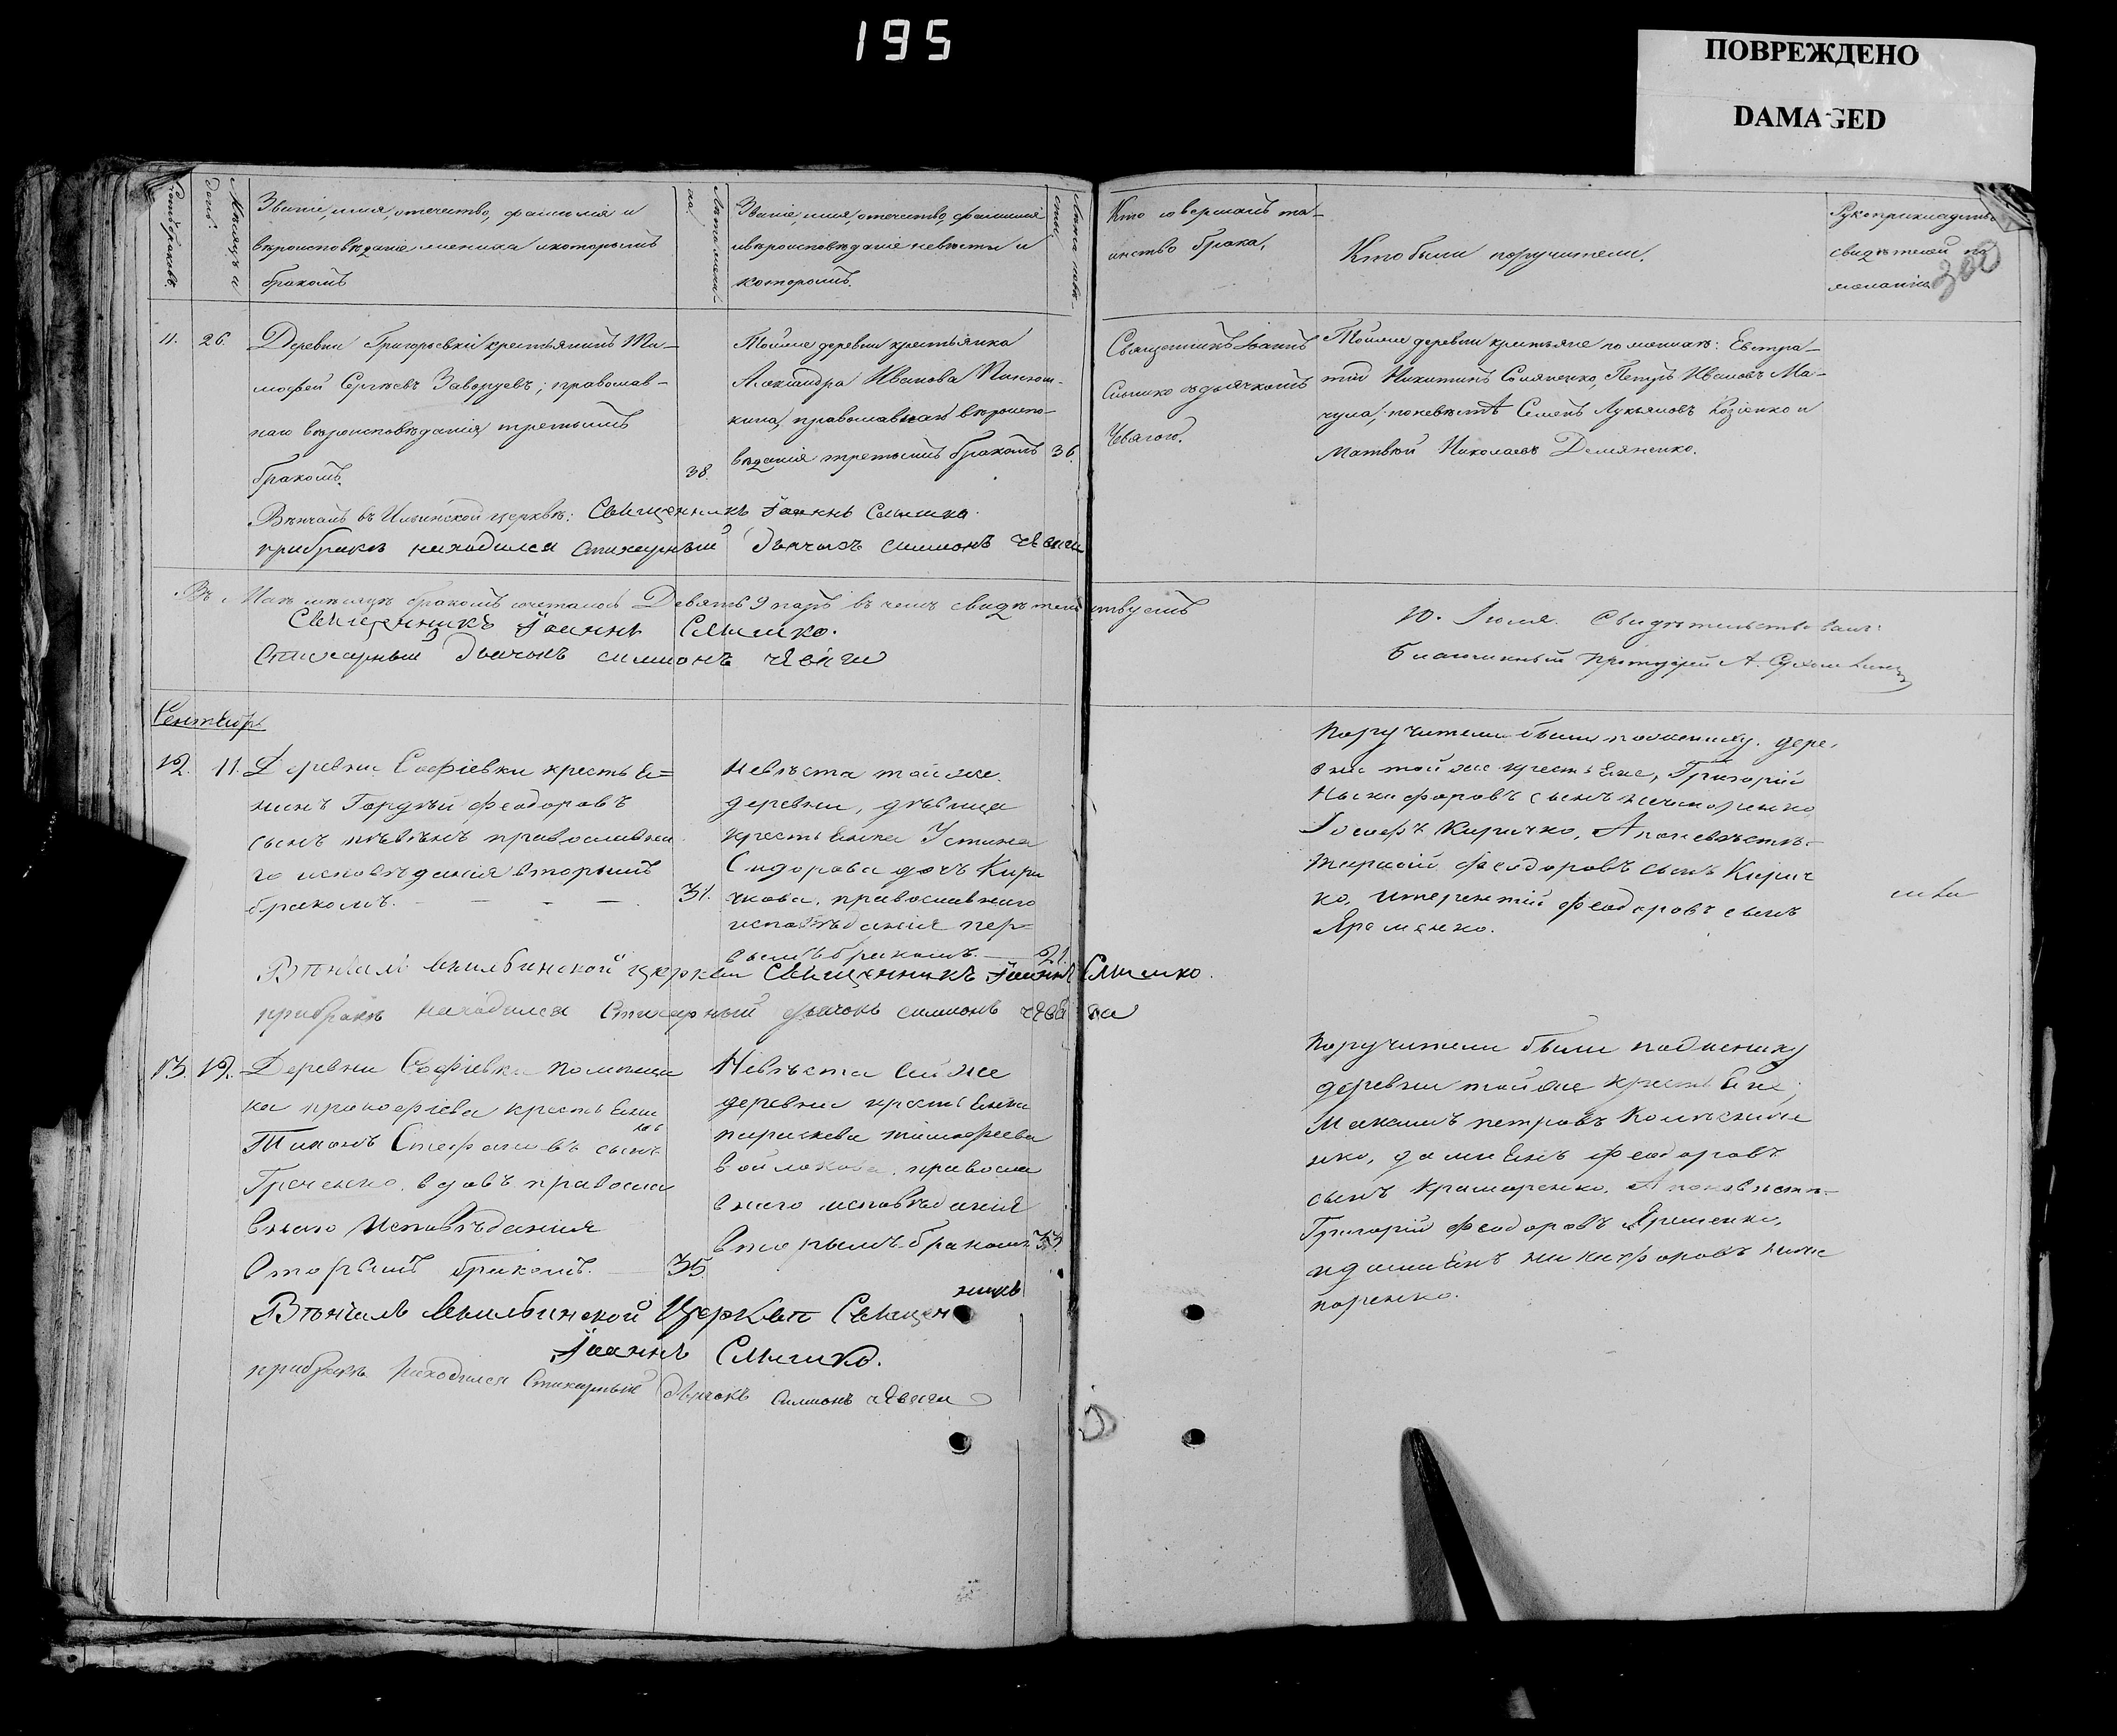 195
ПОВРЕЖДЕНО
DAMAGED
Счетъ браковъ.
Мѣсяцъ и
день.
Званіе, имя, отечество, фамилія и
вѣроисповѣданіе жениха и которымъ
бракомъ
Лѣта жени-
ха.
Званіе, имя, отечество, фамилія
и вѣроисповѣданіе невѣсты и
которымъ.
Лѣта невѣ-
сты.
Кто совершалъ та-
инство брака.
Кто были поручители.
Рукоприкладство
свидѣтелей по
желанію
300
11. 26. Деревни Григорьевки крестьянинъ Ти-
мофей Сергѣевъ Заворуевъ; православ-
наго вѣроисповѣданія, третьимъ
бракомъ.
38.
Тойже деревни крестьянка
Александра Иванова
кина, православнаго вѣроиспо-
вѣданія третьимъ бракомъ 36.
Священникъ Іоаннъ
съ дьячкомъ
Тойже деревни крестьяне по женихѣ: Евстра-
тій Никитинъ Соляненко, Петръ Ивановъ Ма-
чула; по невѣстѣ Семенъ Лукьяновъ Козіенко и
Матвѣй Николаевъ Демяненко.
Вѣнчалъ въ Ильинской церквѣ: Священникъ Іоаннъ
при бракѣ находился Стихарный Дьячокъ Симионъ
Въ Маѣ мѣсяцѣ бракомъ сочеталось Девять 9 паръ въ чемъ свидѣтельствуемъ
Священникъ Іоаннъ
Стихарный Дьячокъ симионъ
10. Іюля. Свидѣтельствовалъ:
благочинный протоіерей А.
Сентябрь
12. 11. Деревни Софіевки крестья=
нинъ Гордѣй Феодоровъ
сынъ православна
го исповѣданія вторымъ
бракомъ. - - - - 31.
Невѣста той же
деревни, дѣвица
крестьянка Устина
Сидорова дочъ Кири
чкова, православнаго
исповѣданія пер=
вымъ бракомъ. — 21.
Поручители были по жениху. дере,
вни той же крестьяне, Григорій
Никифоровъ сынъ
Іосифъ Киричко, А по невѣстѣ-
Феодоровъ сынъ Кирич
ко, и терентій Феодоровъ сынъ
Яременко.
Вѣнчалъ въ церкви Священникъ Іоаннъ
при бракѣ находился Стихарный дьячокъ симионъ
13. 12. Деревни Софіевки помѣщи
ка прокофіева крестьяни
Тихонъ Стефановъ сынъ
Греченко, вдовъ правосла
внаго Исповѣданія
Вторымъ бракомъ. — 35.
Невѣста сейже
деревни крестьянка
параскева тимофеева
войлокова, правосла
внаго исповѣданія
вторымъ бракомъ 33.
Поручители были по жениху
деревни тойже крестьяне;
петровъ
нко, дамиянъ Феодоровъ
сынъ Крамаренко, А по невѣстѣ-
Григорій Феодоровъ Яременко,
и дамиянъ никифоровъ
поренко.
Вѣнчалъ въ Церкви Священ
никъ
Іоаннъ
при бракѣ находился Стихарный Дьячокъ Симионъ